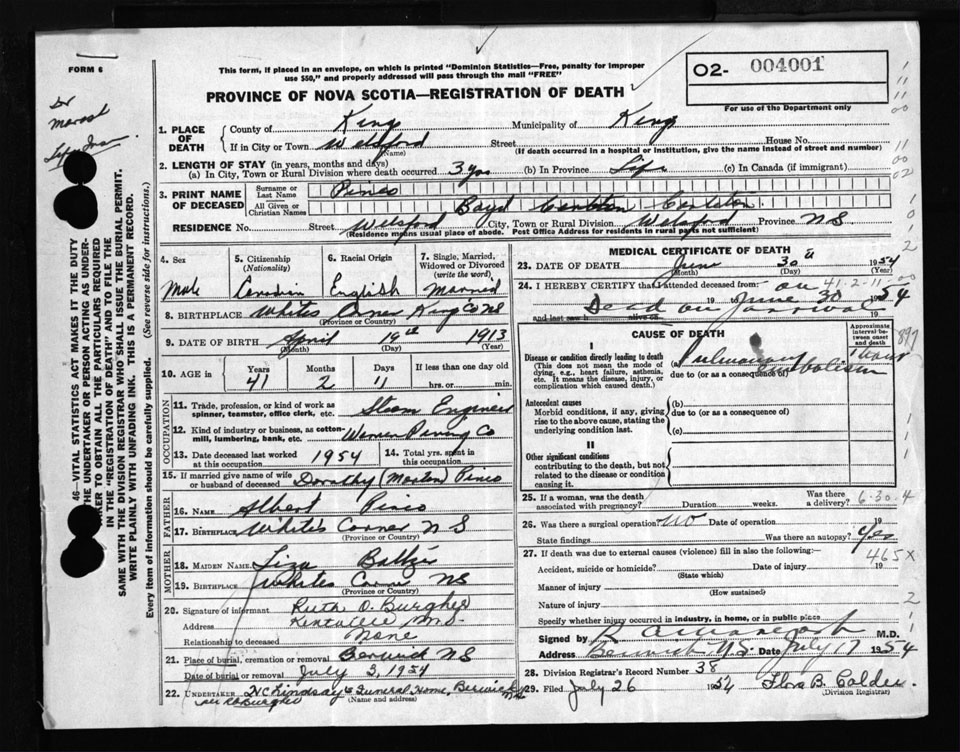 FORM 6
This form, if placed in an envelope, on which is printed "Dominion Statistics—Free, penalty for improper
use $50," and properly addressed will pass through the mail "FREE"
02- 004001
For use of the Department only
PROVINCE OF NOVA SCOTIA—REGISTRATION OF DEATH
Dr
1. PLACE OF DEATH
County of Kings Municipality of Kings
If in City or Town Welsford Street House No.
(Name) (If death occurred in a hospital or institution, give the name instead of street and number)
2. LENGTH OF STAY (in years, months and days)
a) In City, Town or Rural Division where death occurred 3 yrs (b) In Province Life (c) In Canada (if immigrant)
3. PRINT NAME OF DECEASED
Surname or Last Name Pineo
All Given or Christian Names Boyd Carlton
RESIDENCE No. Street Welsford City, Town or Rural Division Welsford Province NS
(Residence means usual place of abode. Post Office Address for residents in rural parts not sufficient)
46—VITAL STATISTICS ACT MAKES IT THE DUTY
THE UNDERTAKER OR PERSON ACTING AS UNDER-
TAKER TO OBTAIN ALL THE PARTICULARS REQUIRED
IN THE "REGISTRATION OF DEATH" AND TO FILE THE
SAME WITH THE DIVISION REGISTRAR WHO SHALL ISSUE THE BURIAL PERMIT.
WRITE PLAINLY WITH UNFADING INK. THIS IS A PERMANENT RECORD.
Every item of information should be carefully supplied. (See reverse side for instructions.)
4. Sex 5. Citizenship (Nationality) 6. Racial Origin 7. Single, Married, Widowed or Divorced (write the word)
Male Canadian English Married
8. BIRTHPLACE Whites Corner Kings Co NS
(Province or Country)
9. DATE OF BIRTH April 19th 1913
(Month) (Day) (Year)
10. AGE in Years Months Days If less than one day
41 2 11 hrs. or min.
OCCUPATION
11. Trade, profession, or kind of work as spinner, teamster, office clerk, etc. Steam Engineer
12. Kind of industry or business, as cotton-mill, lumbering, bank, etc. Warren Paving Co
13. Date deceased last worked at this occupation 1954 14. Total yrs. spent in this occupation
15. If married give name of wife or husband of deceased Dorothy (Morton) Pineo
FATHER
16. Name Albert Pineo
17. Birthplace White's Corner N S
(Province or Country)
MOTHER
18. MAIDEN NAME Liza
19. BIRTHPLACE Whites Corner NS
(Province or Country)
20. Signature of informant Ruth O. Burgher
Address Kentville N.S.
Relationship to deceased None
21. Place of burial, cremation or removal Berwick NS
Date of burial or removal July 3, 1954
22. UNDERTAKER H C Lindsay's Funeral Home, Berwick
(Name and address)
MEDICAL CERTIFICATE OF DEATH
23. DATE OF DEATH June 30th 1954
(Month) (Day) (Year)
24. I HEREBY CERTIFY that I attended deceased from: on 41-2-11
19 to June 30 1954
and last saw h alive on 19
Dead on arrival
897
CAUSE OF DEATH
Approximate interval between onset and death
I
Disease or condition directly leading to death
(This does not mean the mode of dying, e.g., heart failure, asthenia, etc. It means the disease, injury, or complication which caused death.)
Pulmonary Embolism 1 hour
due to (or as a consequence of)
Antecedent causes
Morbid conditions, if any, giving rise to the above cause, stating the underlying condition last.
(b)
due to (or as a consequence of)
(c)
II
Other significant conditions
contributing to the death, but not related to the disease or condition causing it.
25. If a woman, was the death associated with pregnancy? Duration weeks. Was there a delivery? 6·30·4
26. Was there a surgical operation? no Date of operation 19
State findings Was there an autopsy? yes
465X
27. If death was due to external causes (violence) fill in also the following:-
Accident, suicide or homicide? Date of injury 19
(State which)
Manner of injury
(How sustained)
Nature of injury
Specify whether injury occurred in industry, in home, or in public place
Signed by M.D.
Address Berwick NS Date July 17 1954
28. Division Registrar's Record Number 38
29. Filed July 26 1954 Flora B. Calder
(Division Registrar)